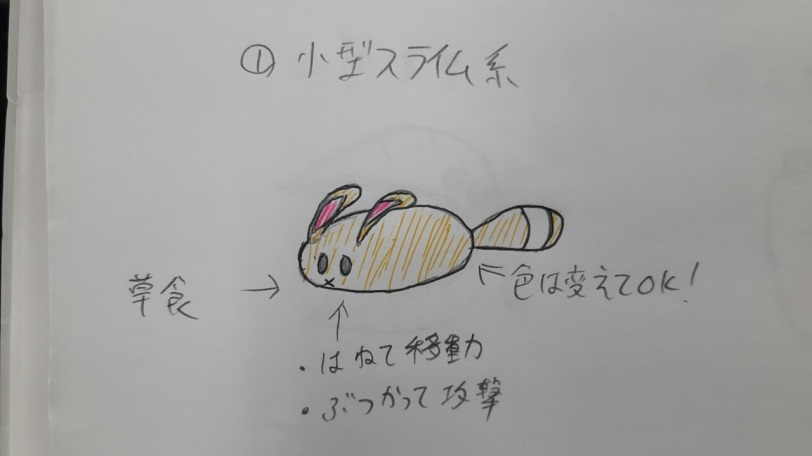 ① 小型スライム系
草食 →
↖色は変えてOK!
↑
・はねて移動
・ぶつかって攻撃